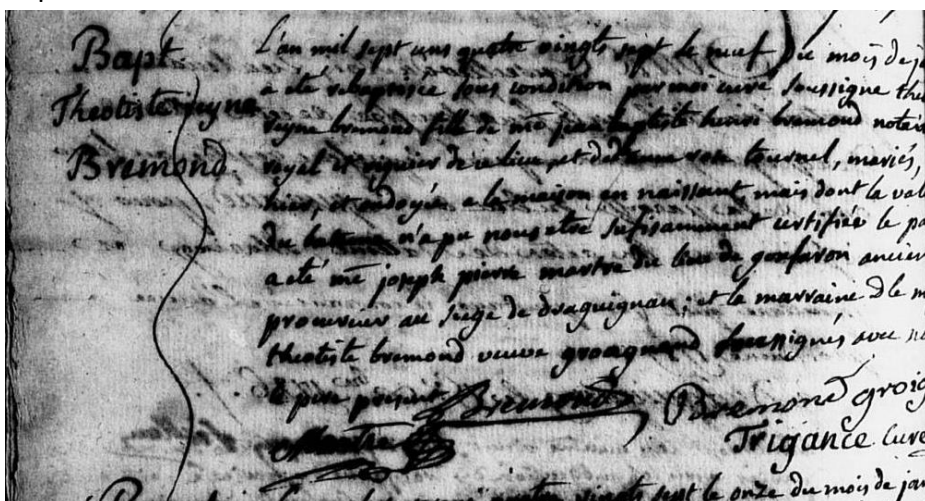 Bapt.
Theotiste reyne
Bremond
L'an mil sept cens quatre vingts sept le neuf du mois de ja
a été rebaptisée sous condition par moi curé soussigné theo
reyne bremond fille de me jean baptiste henri bremond notair
royal et viguier de ce lieu, et de dame rose tournel, mariés,
hier, et ondoyée a la maison en naissant, mais dont la vali
du bateme n'a pu nous etre sufisamment certifiée le pa
a été me joseph pierre martre du lieu de gonfaron ancien
procureur au siege de draguignan; et la marraine dlle m
theotiste bremond veuve groignard soussignés avec n
le pere présent
Bremond Bremond groig
Martre Trigance curé
quatre vingts sept le onze du mois de jan